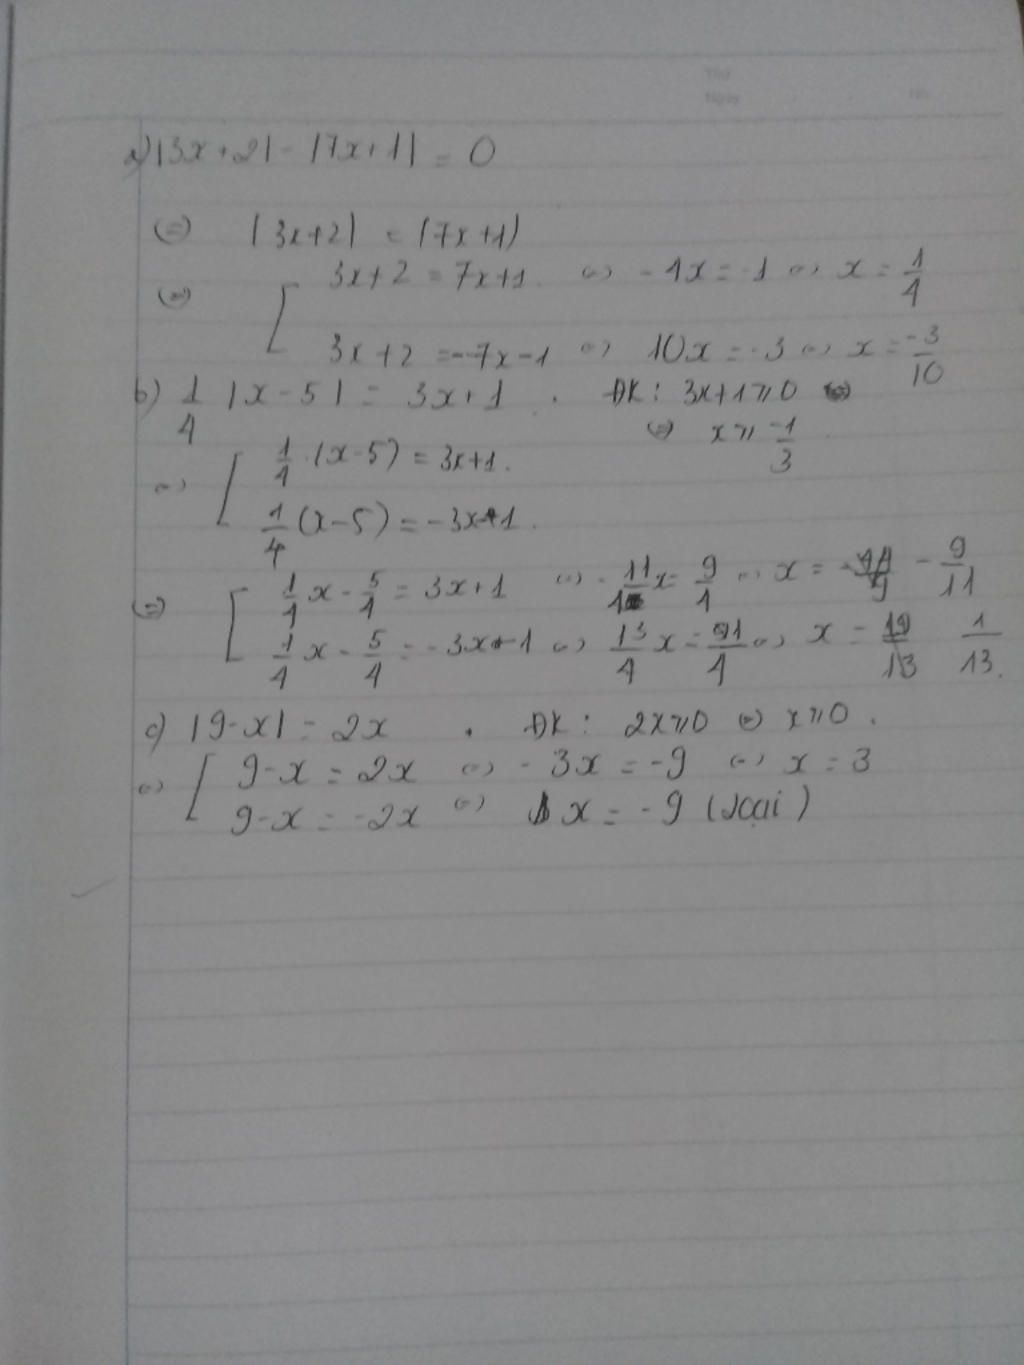 Thứ
Ngày
a) |3x+2| - |7x+1| = 0
(=) |3x+2| = |7x+1|
(=) [ 3x+2 = 7x+1. (=) -4x = -1 (=) x = 1/4
3x+2 = -7x-1 (=) 10x = -3 (=) x = -3/10
b) 1/4 |x-5| = 3x+1 . ĐK: 3x+1 ≥ 0
(=) x ≥ -1/3
(=) [ 1/4 . (x-5) = 3x+1.
1/4 (x-5) = -3x-1.
(=) [ 1/4 x - 5/4 = 3x+1 (=) -11/4 x = 9/4 (=) x = -9/11
1/4 x - 5/4 = -3x-1 (=) 13/4 x = 1/4 (=) x = 1/13.
c) |9-x| = 2x . ĐK: 2x ≥ 0 (=) x ≥ 0.
(=) [ 9-x = 2x (=) -3x = -9 (=) x = 3
9-x = -2x (=) x = -9 (loại)